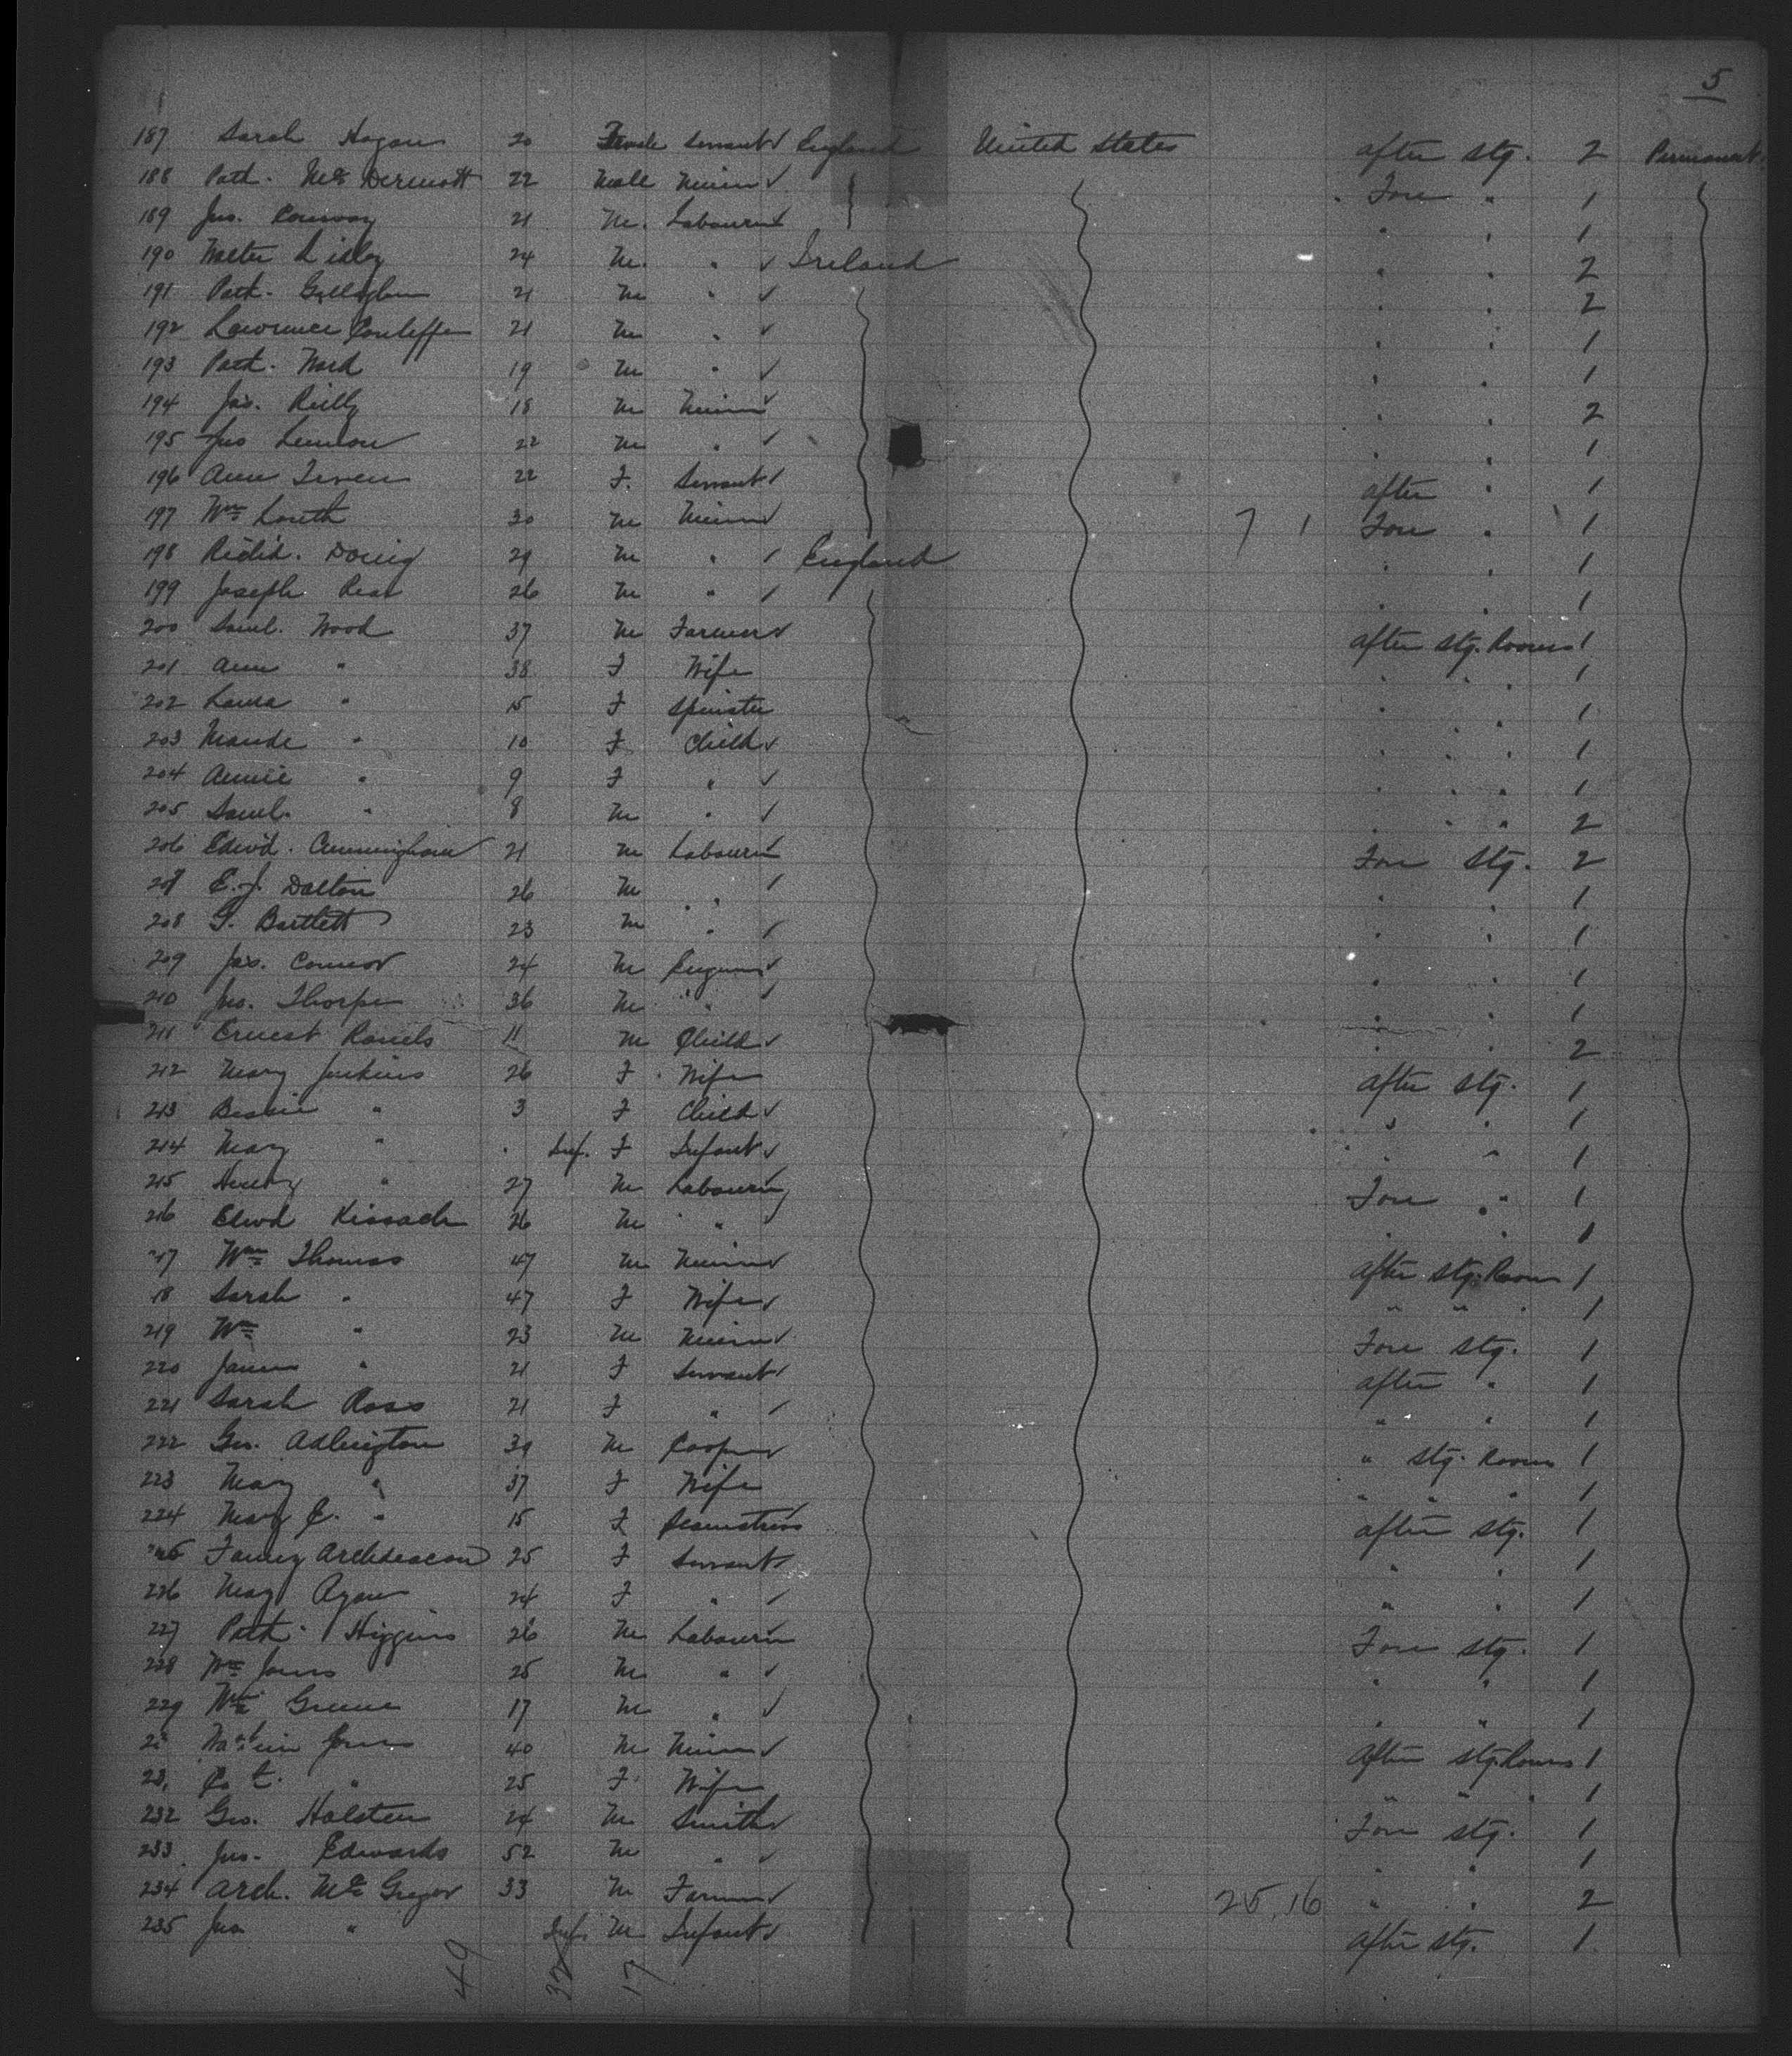 5
187 Sarah Hogan 20 Female Servant ✓ England United States after stg. 2 Permanent
188 Patk. McDermott 22 Male Miner ✓ Fore " 1
189 Jno. Conway 21 M. Labourer ✓ " " 1
190 Walter 24 M. " ✓ Ireland " " 2
191 Patk. Gallagher 21 M " ✓ " " 2
192 Lawrence 21 M " ✓ " " 1
193 Patk. Ward 19 M " ✓ " " 1
194 Jas. Reilly 18 M Miner ✓ " " 2
195 Jno Lennon 22 M " ✓ " " 1
196 Ann 22 F. Servant ✓ after " 1
197 Wm Louth 30 M Miner ✓ 7 1 Fore " 1
198 Richd. 29 M " ✓ England " " 1
199 Joseph 26 M " ✓ " " 1
200 Saml. Wood 37 M Farmer ✓ after stg. Rooms 1
201 Ann " 38 F Wife " " " 1
202 Laura " 15 F Spinster " " " 1
203 Maude " 10 F Child ✓ " " " 1
204 Annie " 9 F " ✓ " " " 1
205 Saml. " 8 M " ✓ " " " 2
206 Edwd. Cunningham 21 M Labourer Fore stg. 2
207 E. J. Dalton 26 M " ✓ " " 1
208 G. Bartlett 23 M " ✓ " " 1
209 Jas. Connor 24 M ✓ " " 1
210 Jno. Thorpe 36 M " ✓ " " 1
211 Ernest 11 M Child ✓ " " 2
212 Mary Jenkins 26 F Wife after stg. 1
213 Bessie " 3 F Child ✓ " " 1
214 Mary " Inf. F Infant ✓ " " 1
215 Henry " 27 M Labourer Fore " 1
216 Edwd Kissack 26 M " ✓ " " 1
217 Wm Thomas 47 M Miner ✓ after stg. Room 1
18 Sarah " 47 F Wife ✓ " " " 1
219 Wm " 23 M Miner ✓ Fore stg. 1
220 " 21 F Servant ✓ after " 1
221 Sarah Ross 21 F " ✓ " " 1
222 Geo. Adlington 39 M Cooper ✓ " stg. Room 1
223 Mary " 37 F Wife " " " 1
224 Mary E. " 15 F Seamstress after stg. 1
225 Fanny Archdeacon 25 F Servant ✓ " " 1
226 Mary 24 F " ✓ " " 1
227 Patk. Higgins 26 M Labourer Fore stg. 1
228 Wm Jones 25 M " ✓ " " 1
229 Wm Greene 17 M " ✓ " " 1
23 Jones 40 M Miner ✓ After stg. Rooms 1
23 " 25 F Wife " " " 1
232 Geo. Halsten 24 M Smith ✓ Fore stg. 1
233 Jno. Edwards 52 M " ✓ " " 1
234 Arch. McGregor 33 M Farmer ✓ 25.16 " " 2
235 Jno " Inf. M Infant ✓ after stg. 1
49 32 17